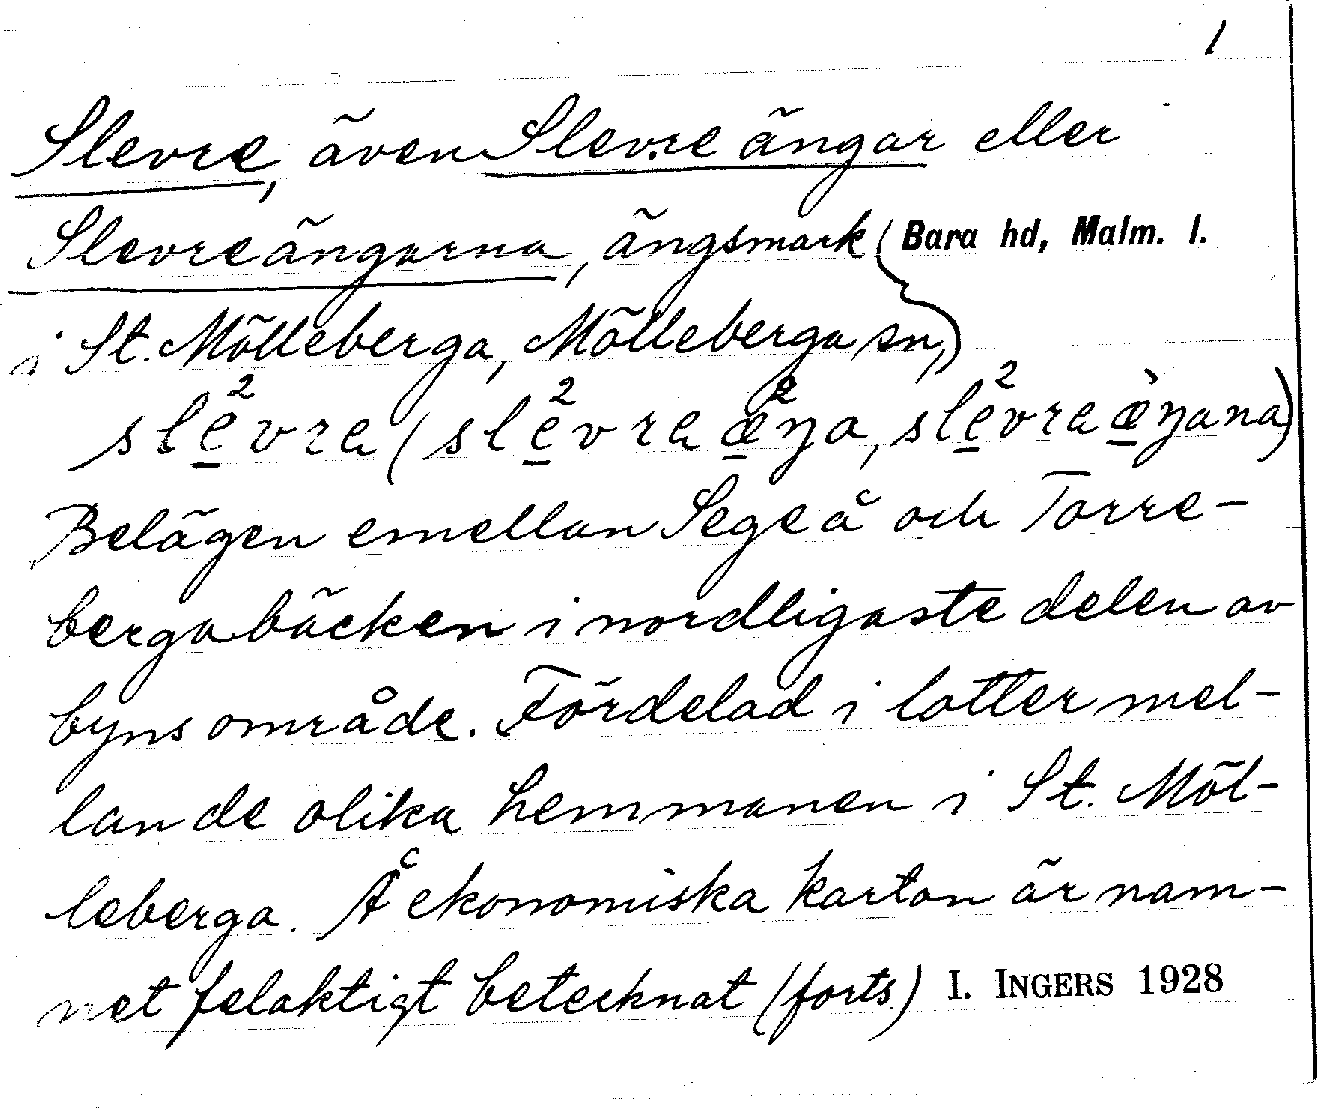 1
Slevre, även Slevre ängar eller
Slevreängarna, ängsmark (Bara hd, Malm. l.
i St. Mölleberga, Mölleberga sn,)
slè̱²vra (slè̱²vra æ̱²ŋa, slè̱²vra æ̱̀ŋana)
Belägen emellan Sege å och Torre-
bergabäcken i nordligaste delen av
byns område. Fördelad i lotter mel-
lan de olika hemmanen i St. Möl-
leberga. Å ekonomiska kartan är nam-
net felaktigt betecknat (forts.) I. INGERS 1928